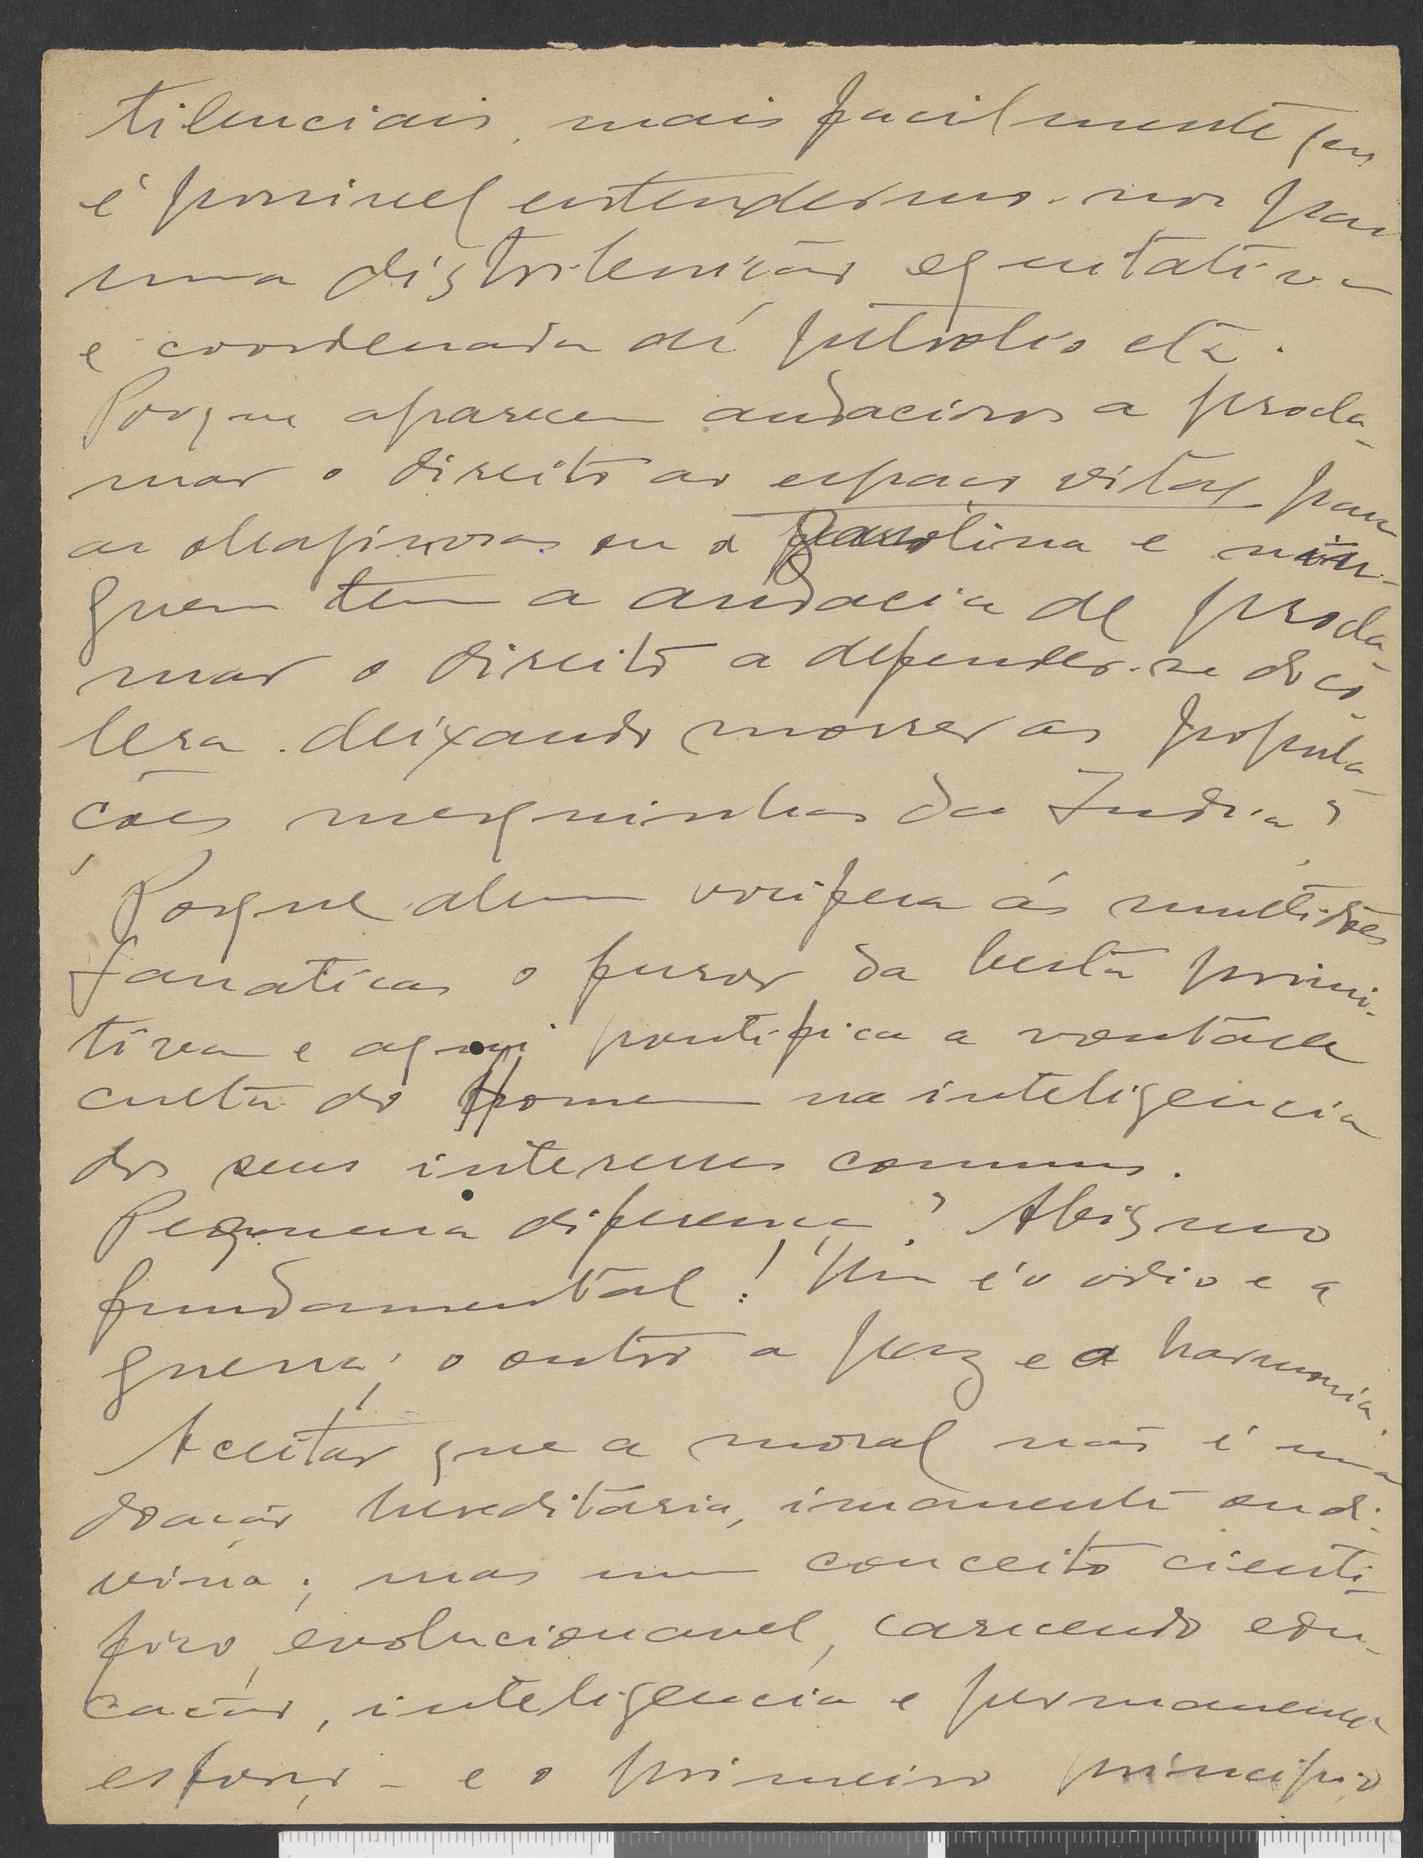 tilenciais, mais facilmente
é possivel entendermo-nos para
uma distribuição equitativa
e coordenada de petroleo etc.
Porque aparecem audaciosos a procla-
mar o direito ao espaço vital para
as oleaginosas ou a gasolina e nin-
guem tem a audacia de procla-
mar o direito a defender-se do có-
lera deixando morrer as popula-
ções mesquinhas da India?
Porque alem vocifera ás multidões
fanaticas o furor da besta primi-
tiva e aqui pontifica a vontade
culta do Homem na inteligencia
dos seus interesses comuns.
Pequena diferença? Abismo
fundamental! Um é o odio e a
guerra; o outro a paz e a harmonia.
Aceitar que a moral não é uma
doação hereditária, imanente ou di-
vina; mas um conceito cienti-
fico, evolucionavel, carecendo edu-
cação, inteligencia e permanente
esforço - e o primeiro principio